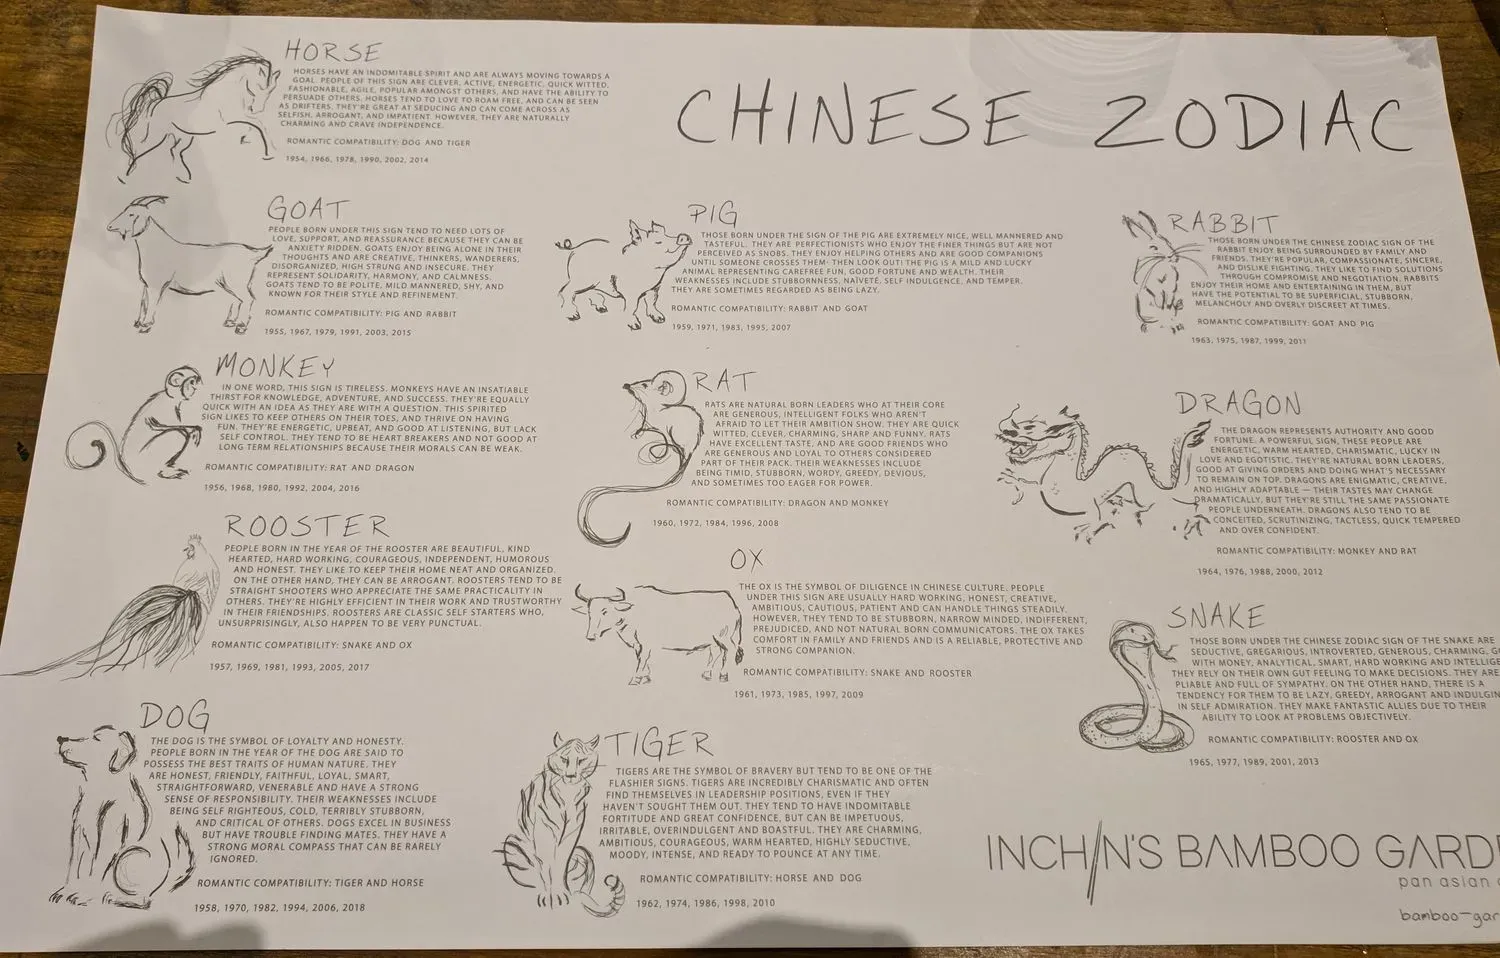 CHINESE ZODIAC
HORSE
HORSES HAVE AN INDOMITABLE SPIRIT AND ARE ALWAYS MOVING TOWARDS A
GOAL. PEOPLE OF THIS SIGN ARE CLEVER, ACTIVE, ENERGETIC, QUICK WITTED,
FASHIONABLE, AGILE, POPULAR AMONGST OTHERS, AND HAVE THE ABILITY TO
PERSUADE OTHERS. HORSES TEND TO LOVE TO ROAM FREE, AND CAN BE SEEN
AS DRIFTERS. THEY'RE GREAT AT SEDUCING AND CAN COME ACROSS AS
SELFISH, ARROGANT, AND IMPATIENT. HOWEVER, THEY ARE NATURALLY
CHARMING AND CRAVE INDEPENDENCE.
ROMANTIC COMPATIBILITY: DOG AND TIGER
1954, 1966, 1978, 1990, 2002, 2014
GOAT
PEOPLE BORN UNDER THIS SIGN TEND TO NEED LOTS OF
LOVE, SUPPORT, AND REASSURANCE BECAUSE THEY CAN BE
ANXIETY RIDDEN. GOATS ENJOY BEING ALONE IN THEIR
THOUGHTS AND ARE CREATIVE, THINKERS, WANDERERS,
DISORGANIZED, HIGH STRUNG AND INSECURE. THEY
REPRESENT SOLIDARITY, HARMONY, AND CALMNESS.
GOATS TEND TO BE POLITE, MILD MANNERED, SHY, AND
KNOWN FOR THEIR STYLE AND REFINEMENT.
ROMANTIC COMPATIBILITY: PIG AND RABBIT
1955, 1967, 1979, 1991, 2003, 2015
MONKEY
IN ONE WORD, THIS SIGN IS TIRELESS. MONKEYS HAVE AN INSATIABLE
THIRST FOR KNOWLEDGE, ADVENTURE, AND SUCCESS. THEY'RE EQUALLY
QUICK WITH AN IDEA AS THEY ARE WITH A QUESTION. THIS SPIRITED
SIGN LIKES TO KEEP OTHERS ON THEIR TOES, AND THRIVE ON HAVING
FUN. THEY'RE ENERGETIC, UPBEAT, AND GOOD AT LISTENING, BUT LACK
SELF CONTROL. THEY TEND TO BE HEART BREAKERS AND NOT GOOD AT
LONG-TERM RELATIONSHIPS BECAUSE THEIR MORALS CAN BE WEAK.
ROMANTIC COMPATIBILITY: RAT AND DRAGON
1956, 1968, 1980, 1992, 2004, 2016
ROOSTER
PEOPLE BORN IN THE YEAR OF THE ROOSTER ARE BEAUTIFUL, KIND
HEARTED, HARD WORKING, COURAGEOUS, INDEPENDENT, HUMOROUS
AND HONEST. THEY LIKE TO KEEP THEIR HOME NEAT AND ORGANIZED.
ON THE OTHER HAND, THEY CAN BE ARROGANT. ROOSTERS TEND TO BE
STRAIGHT SHOOTERS WHO APPRECIATE THE SAME PRACTICALITY IN
OTHERS. THEY'RE HIGHLY EFFICIENT IN THEIR WORK AND TRUSTWORTHY
IN THEIR FRIENDSHIPS. ROOSTERS ARE CLASSIC SELF STARTERS WHO,
UNSURPRISINGLY, ALSO HAPPEN TO BE VERY PUNCTUAL.
ROMANTIC COMPATIBILITY: SNAKE AND OX
1957, 1969, 1981, 1993, 2005, 2017
DOG
THE DOG IS THE SYMBOL OF LOYALTY AND HONESTY.
PEOPLE BORN IN THE YEAR OF THE DOG ARE SAID TO
POSSESS THE BEST TRAITS OF HUMAN NATURE. THEY
ARE HONEST, FRIENDLY, FAITHFUL, LOYAL, SMART,
STRAIGHTFORWARD, VENERABLE AND HAVE A STRONG
SENSE OF RESPONSIBILITY. THEIR WEAKNESSES INCLUDE
BEING SELF RIGHTEOUS, COLD, TERRIBLY STUBBORN,
AND CRITICAL OF OTHERS. DOGS EXCEL IN BUSINESS
BUT HAVE TROUBLE FINDING MATES. THEY HAVE A
STRONG MORAL COMPASS THAT CAN BE RARELY
IGNORED.
ROMANTIC COMPATIBILITY: TIGER AND HORSE
1958, 1970, 1982, 1994, 2006, 2018
PIG
THOSE BORN UNDER THE SIGN OF THE PIG ARE EXTREMELY NICE, WELL MANNERED AND
TASTEFUL. THEY ARE PERFECTIONISTS WHO ENJOY THE FINER THINGS BUT ARE NOT
PERCEIVED AS SNOBS. THEY ENJOY HELPING OTHERS AND ARE GOOD COMPANIONS
UNTIL SOMEONE CROSSES THEM- THEN LOOK OUT! THE PIG IS A MILD AND LUCKY
ANIMAL REPRESENTING CAREFREE FUN, GOOD FORTUNE AND WEALTH. THEIR
WEAKNESSES INCLUDE STUBBORNNESS, NAÏVETÉ, SELF INDULGENCE, AND TEMPER.
THEY ARE SOMETIMES REGARDED AS BEING LAZY.
ROMANTIC COMPATIBILITY: RABBIT AND GOAT
1959, 1971, 1983, 1995, 2007
RAT
RATS ARE NATURAL BORN LEADERS WHO AT THEIR CORE
ARE GENEROUS, INTELLIGENT FOLKS WHO AREN'T
AFRAID TO LET THEIR AMBITION SHOW. THEY ARE QUICK
WITTED, CLEVER, CHARMING, SHARP AND FUNNY. RATS
HAVE EXCELLENT TASTE, AND ARE GOOD FRIENDS WHO
ARE GENEROUS AND LOYAL TO OTHERS CONSIDERED
PART OF THEIR PACK. THEIR WEAKNESSES INCLUDE
BEING TIMID, STUBBORN, WORDY, GREEDY, DEVIOUS,
AND SOMETIMES TOO EAGER FOR POWER.
ROMANTIC COMPATIBILITY: DRAGON AND MONKEY
1960, 1972, 1984, 1996, 2008
OX
THE OX IS THE SYMBOL OF DILIGENCE IN CHINESE CULTURE. PEOPLE
UNDER THIS SIGN ARE USUALLY HARD WORKING, HONEST, CREATIVE,
AMBITIOUS, CAUTIOUS, PATIENT AND CAN HANDLE THINGS STEADILY.
HOWEVER, THEY TEND TO BE STUBBORN, NARROW MINDED, INDIFFERENT,
PREJUDICED, AND NOT NATURAL BORN COMMUNICATORS. THE OX TAKES
COMFORT IN FAMILY AND FRIENDS AND IS A RELIABLE, PROTECTIVE AND
STRONG COMPANION.
ROMANTIC COMPATIBILITY: SNAKE AND ROOSTER
1961, 1973, 1985, 1997, 2009
TIGER
TIGERS ARE THE SYMBOL OF BRAVERY BUT TEND TO BE ONE OF THE
FLASHIER SIGNS. TIGERS ARE INCREDIBLY CHARISMATIC AND OFTEN
FIND THEMSELVES IN LEADERSHIP POSITIONS, EVEN IF THEY
HAVEN'T SOUGHT THEM OUT. THEY TEND TO HAVE INDOMITABLE
FORTITUDE AND GREAT CONFIDENCE, BUT CAN BE IMPETUOUS,
IRRITABLE, OVERINDULGENT AND BOASTFUL. THEY ARE CHARMING,
AMBITIOUS, COURAGEOUS, WARM HEARTED, HIGHLY SEDUCTIVE,
MOODY, INTENSE, AND READY TO POUNCE AT ANY TIME.
ROMANTIC COMPATIBILITY: HORSE AND DOG
1962, 1974, 1986, 1998, 2010
RABBIT
THOSE BORN UNDER THE CHINESE ZODIAC SIGN OF THE
RABBIT ENJOY BEING SURROUNDED BY FAMILY AND
FRIENDS. THEY'RE POPULAR, COMPASSIONATE, SINCERE,
AND DISLIKE FIGHTING. THEY LIKE TO FIND SOLUTIONS
THROUGH COMPROMISE AND NEGOTIATION. RABBITS
ENJOY THEIR HOME AND ENTERTAINING IN THEM, BUT
HAVE THE POTENTIAL TO BE SUPERFICIAL, STUBBORN,
MELANCHOLY AND OVERLY DISCREET AT TIMES.
ROMANTIC COMPATIBILITY: GOAT AND PIG
1963, 1975, 1987, 1999, 2011
DRAGON
THE DRAGON REPRESENTS AUTHORITY AND GOOD
FORTUNE. A POWERFUL SIGN, THESE PEOPLE ARE
ENERGETIC, WARM HEARTED, CHARISMATIC, LUCKY IN
LOVE AND EGOTISTIC. THEY'RE NATURAL BORN LEADERS,
GOOD AT GIVING ORDERS AND DOING WHAT'S NECESSARY
TO REMAIN ON TOP. DRAGONS ARE ENIGMATIC, CREATIVE,
AND HIGHLY ADAPTABLE — THEIR TASTES MAY CHANGE
DRAMATICALLY, BUT THEY'RE STILL THE SAME PASSIONATE
PEOPLE UNDERNEATH. DRAGONS ALSO TEND TO BE
CONCEITED, SCRUTINIZING, TACTLESS, QUICK TEMPERED
AND OVER CONFIDENT.
ROMANTIC COMPATIBILITY: MONKEY AND RAT
1964, 1976, 1988, 2000, 2012
SNAKE
THOSE BORN UNDER THE CHINESE ZODIAC SIGN OF THE SNAKE ARE
SEDUCTIVE, GREGARIOUS, INTROVERTED, GENEROUS, CHARMING, G
WITH MONEY, ANALYTICAL, SMART, HARD WORKING AND INTELLIGE
THEY RELY ON THEIR OWN GUT FEELING TO MAKE DECISIONS. THEY ARE
PLIABLE AND FULL OF SYMPATHY. ON THE OTHER HAND, THERE IS A
TENDENCY FOR THEM TO BE LAZY, GREEDY, ARROGANT AND INDULGIN
IN SELF ADMIRATION. THEY MAKE FANTASTIC ALLIES DUE TO THEIR
ABILITY TO LOOK AT PROBLEMS OBJECTIVELY.
ROMANTIC COMPATIBILITY: ROOSTER AND OX
1965, 1977, 1989, 2001, 2013
INCHIN'S BAMBOO GARDE
pan asian
bamboo-gar